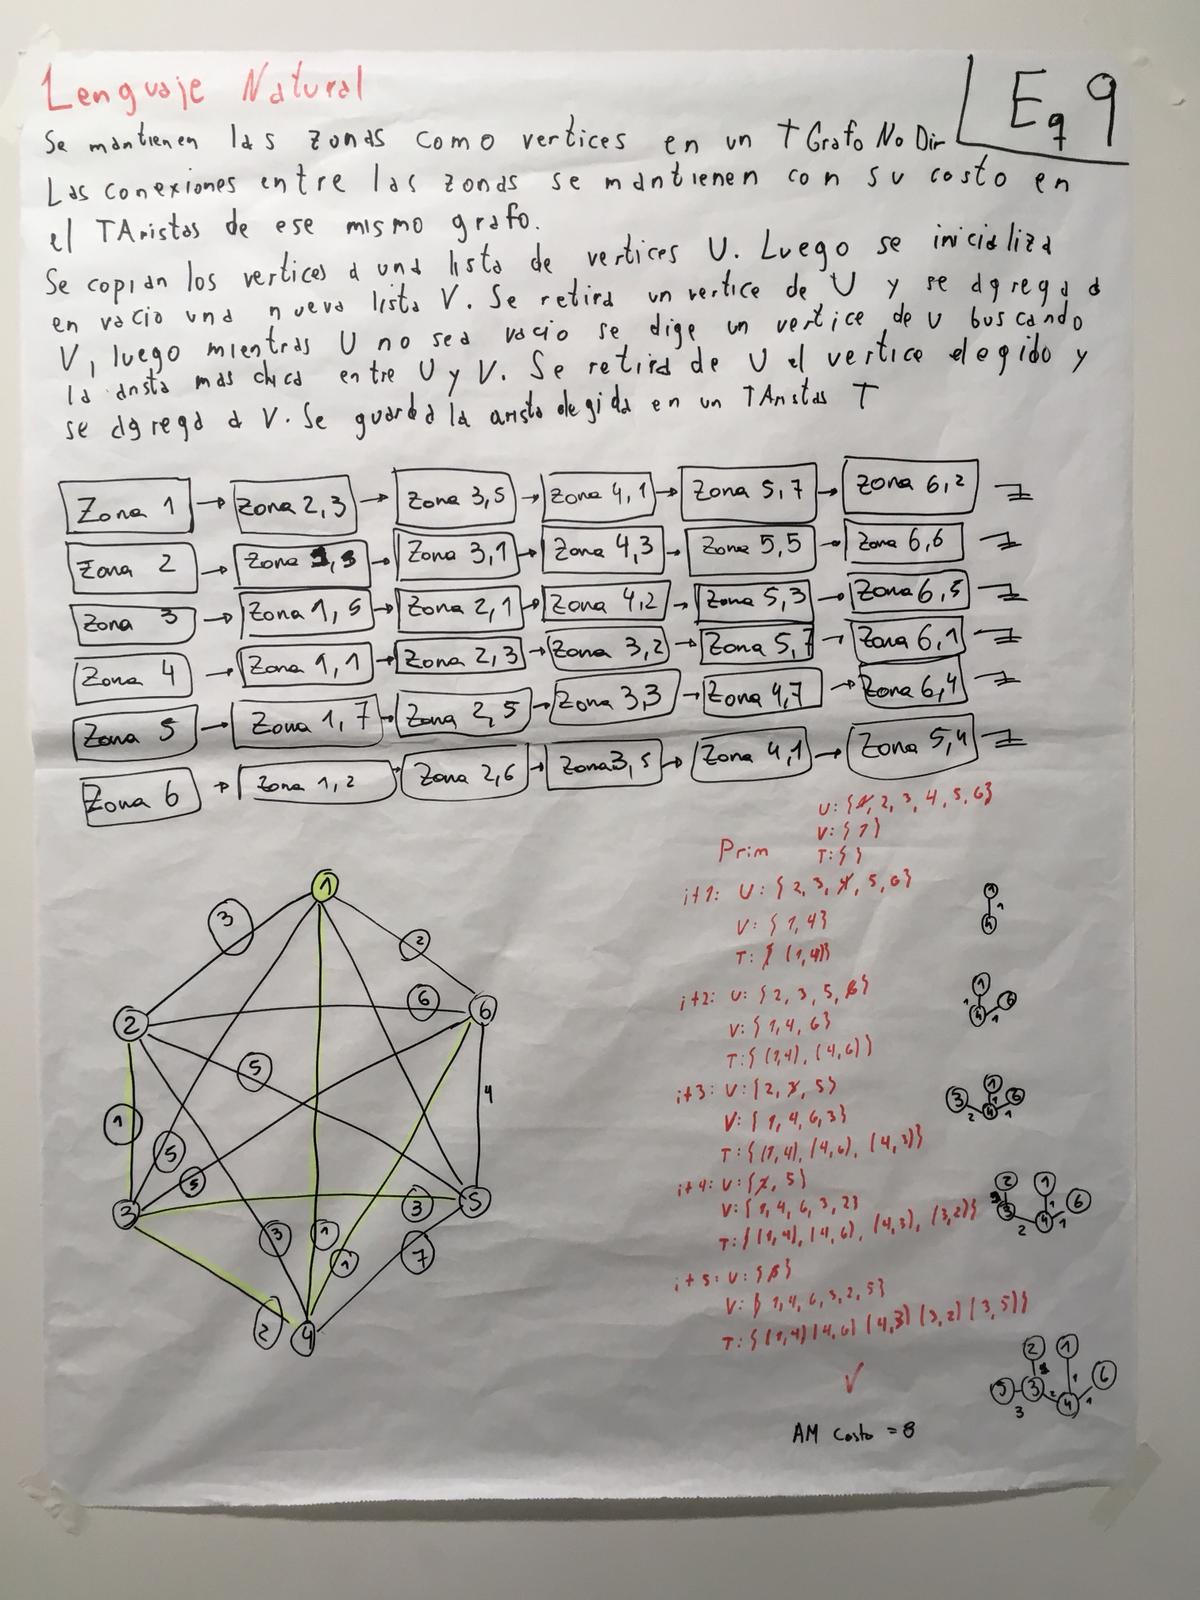 Lenguaje Natural
Eq 9
Se mantienen las zonas como vertices en un TGrafo No Dir
Las conexiones entre las zonas se mantienen con su costo en
el TAristas de ese mismo grafo.
Se copian los vertices a una lista de vertices U. Luego se inicializa
en vacio una nueva lista V. Se retira un vertice de U y se agrega a
V, luego mientras U no sea vacio se elige un vertice de U buscando
la arista mas chica entre U y V. Se retira de U el vertice elegido y
se agrega a V. Se guarda la arista elegida en un TAristas T
Zona 1 → Zona 2,3 → Zona 3,5 → Zona 4,1 → Zona 5,7 → Zona 6,2
Zona 2 → Zona → Zona 3,1 → Zona 4,3 → Zona 5,5 → Zona 6,6
Zona 3 → Zona 1,5 → Zona 2,1 → Zona 4,2 → Zona 5,3 → Zona 6,5
Zona 4 → Zona 1,1 → Zona 2,3 → Zona 3,2 → Zona 5,7 → Zona 6,1
Zona 5 → Zona 1,7 → Zona 2,5 → Zona 3,3 → Zona 4,7 → Zona 6,4
Zona 6 → Zona 1,2 → Zona 2,6 → Zona 3,5 → Zona 4,1 → Zona 5,4
U: {1, 2, 3, 4, 5, 6}
V: {1}
Prim T: { }
it1: U: {2, 3, 4, 5, 6}
V: {1, 4}
T: {(1,4)}
it2: U: {2, 3, 5, 6}
V: {1, 4, 6}
T: {(1,4), (4,6)}
it3: U: {2, 3, 5}
V: {1, 4, 6, 3}
T: {(1,4), (4,6), (4,3)}
it4: U: {2, 5}
V: {1, 4, 6, 3, 2}
T: {(1,4), (4,6), (4,3), (3,2)}
it5: U: {5}
V: {1, 4, 6, 3, 2, 5}
T: {(1,4) (4,6) (4,3) (3,2) (3,5)}
AM costo = 8
1
3
2
6
2
6
5
4
1
5
5
3
3
5
3
1
1
7
2
4
1
1
4
1
1
4
1
6
3
1
6
2
4
1
2
1
3
6
2
4
1
1
2
1
5
3
6
3
2
4
1
1